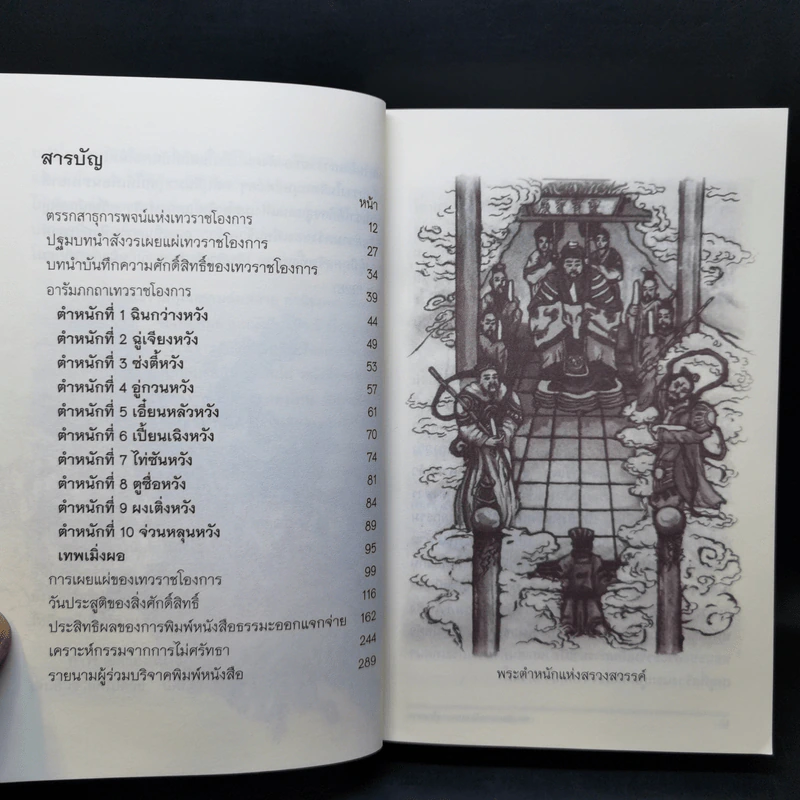 สารบัญ
หน้า
ตรรกสาธุการพจน์แห่งเทวราชโองการ 12
ปฐมบทนำสังวรเผยแผ่เทวราชโองการ 27
บทนำบันทึกความศักดิ์สิทธิ์ของเทวราชโองการ 34
อารัมภกถาเทวราชโองการ 39
ตำหนักที่ 1 ฉินกว่างหวัง 44
ตำหนักที่ 2 ฉู่เจียงหวัง 49
ตำหนักที่ 3 ซ่งตี้หวัง 53
ตำหนักที่ 4 อู่กวนหวัง 57
ตำหนักที่ 5 เอี๋ยนหลัวหวัง 61
ตำหนักที่ 6 เปี้ยนเฉิงหวัง 70
ตำหนักที่ 7 ไท่ซันหวัง 74
ตำหนักที่ 8 ตูซื่อหวัง 81
ตำหนักที่ 9 ผงเติ่งหวัง 84
ตำหนักที่ 10 จ่วนหลุนหวัง 89
เทพเมิ่งผอ 95
การเผยแผ่ของเทวราชโองการ 99
วันประสูติของสิ่งศักดิ์สิทธิ์ 116
ประสิทธิผลของการพิมพ์หนังสือธรรมะออกแจกจ่าย 162
เคราะห์กรรมจากการไม่ศรัทธา 244
รายนามผู้ร่วมบริจาคพิมพ์หนังสือ 289
พระตำหนักแห่งสรวงสวรรค์